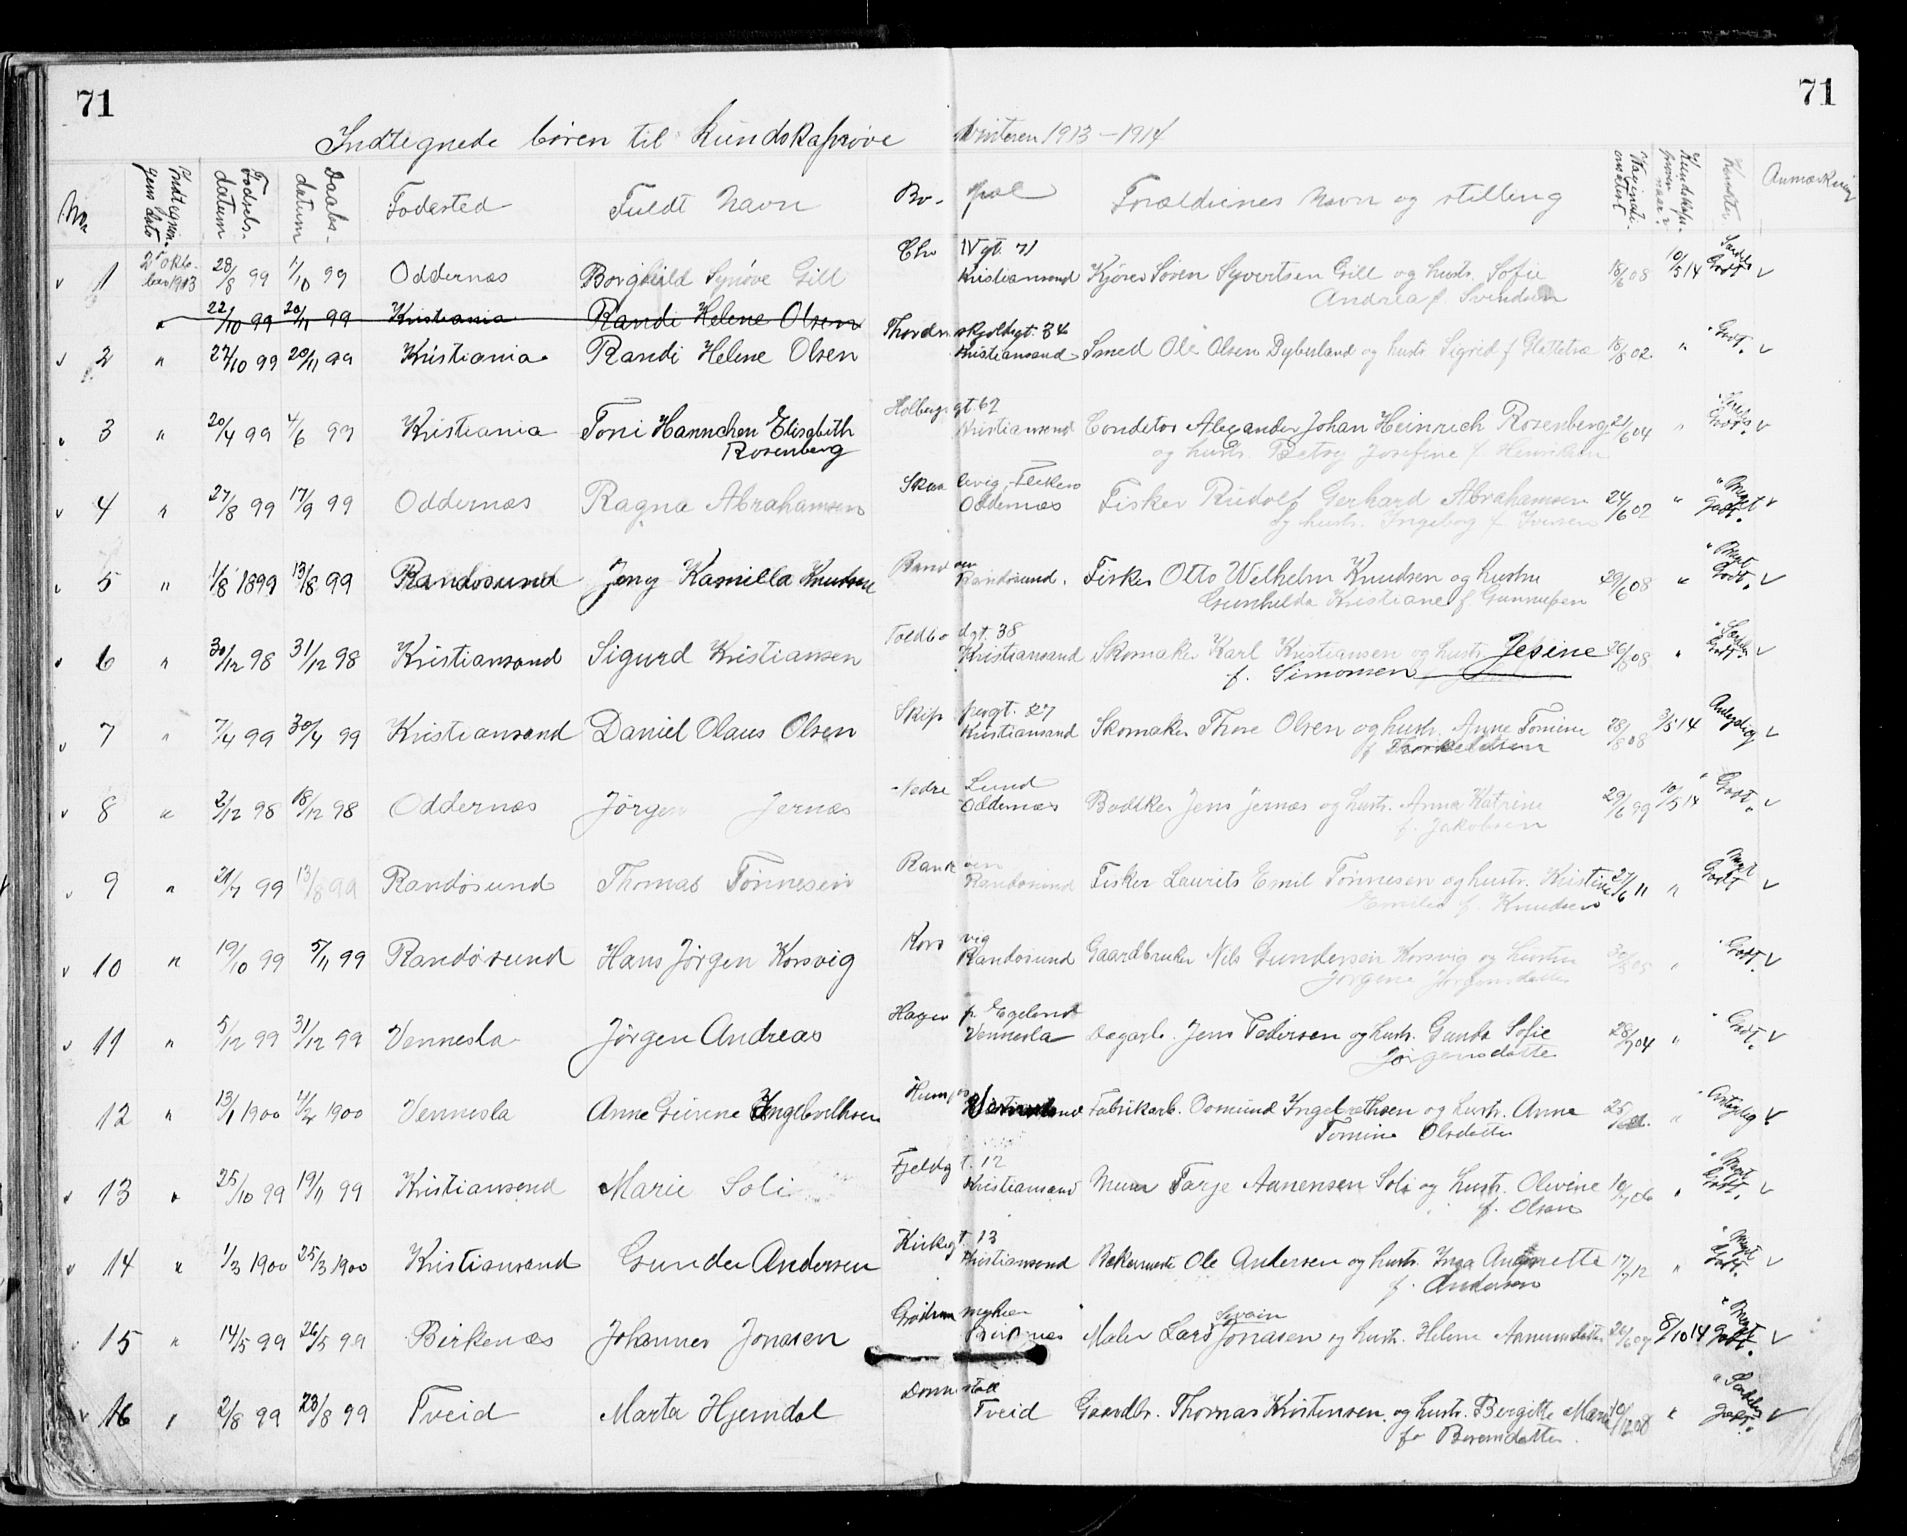 71 71
Indtegnede børen til Kundskapsrøve Vinteren 1913-1914
No. Indtegnin- gens dato Fødsels- datum Daabs- datum Fødested Fuldt Navn Bo- pæl Forældrenes Navn og stilling Kundskaps- Karakter Anmærkning
Chr IV gt. 71
1 2 okto- ber 1913 28/8 99 1/10 99 Oddernæs Borghild Synöve Gill Kristiansand Kjører Søren Syvertsen Gill og hustr. Sofie 18/6 08 10/5 14 Godt
Andrea f. Svendsen
" 22/10 99 20/11 99 Kristiania Randi Helene Olsen
Thordenskjoldsgt. 34
2 " 22/10 99 20/11 99 Kristiania Randi Helene Olsen Kristiansand Smed Ole Olsen Dyberland og hustr. Sigrid f. 18/8 02 " Godt.
Holbergsgt. 67
3 " 20/4 99 4/6 99 Kristiania Toni Hannchen Elisabeth Kristiansand Conditor Alexander Johan Heinrich Rosenberg 21/6 04 " Godt.
Rosenberg og hustr. Betsy Josefine f. Henriksen
Skaa levig, Flekerø
4 " 27/8 99 17/9 99 Oddernæs Ragna Abrahamsen Oddernæs Fisker Rudolf Gerhard Abrahamsen 24/6 02 " Meget godt.
og hustr. Ingeborg f. Iversen
Rand øen
5 " 1/8 1899 13/8 99 Randøsund Jeny Kamilla Knudsen Randøsund. Fisker Otto Wilhelm Knudsen og hustru 29/6 08 " Meget Godt.
Gunhilda Kristiane f. Gunnufsen
Toldbo dgt. 38
6 " 30/12 98 31/12 98 Kristiansand Sigurd Kristiansen Kristiansand Skomaker Karl Kristiansen og hustr. Jesine 26/8 08 " Godt.
f. Simonsen
Skip pergt. 27
7 " 7/4 99 30/4 99 Kristiansand Daniel Olaus Olsen Kristiansand Skomaker Thore Olsen og hustr. Anne Tomine 28/8 08 3/5 14
f. Thorkeldsen
Nedre Lund
8 " 2/12 98 18/12 98 Oddernæs Jörgen Jernæs Oddernæs Bødker Jens Jernæs og hustr. Anna Katrine 29/6 99 10/5 14 " Godt.
f. Jakobsen
Rand øen
9 " 21/7 99 13/8 99 Randösund Thomas Tönnesen Randösund Fisker Laurits Emil Tönnesen og hustr. Kristine 27/6 11 " Meget Godt
Emilie f. Knudsen
Kors vig
10 " 19/10 99 5/11 99 Randösund Hans Jörgen Korsvig Randösund Gaardbruker Nils Gundersen Korsvig og hustru " Godt.
Jörgine Jörgensdatter
Hagen p. Egeland
11 " 5/12 99 31/12 99 Vennesla Jörgen Andreas Vennesla Dagarb. Jens Pedersen og hustr. Gunda Sofie 28/7 04 " Godt.
Jörgensdatter
12 " 13/1 1900 4/2 1900 Vennesla Anne Gurine Ingebrethsen Fabrikarb. Osmund Ingebrethsen og hustr. Anne "
Tomine Olsdatter
Fjeldg t. 12
13 " 25/10 99 19/11 99 Kristiansand Marie Soli Kristiansand Murer Tarje Aanensen Soli og hustr. Olevine 10/7 06 " Meget Godt.
f. Olsen
Kirkeg t. 13
14 " 1/3 1900 25/3 1900 Kristiansand Gunder Andersen Kristiansand Bakermester Ole Andersen og hustr. Inga 17/7 12 " Meget Godt.
f. Andersen
myhren
15 " 14/5 99 26/5 99 Birkenæs Johannes Jonasen Birkenæs Maler Lars Svain Jonasen og hustr. Helene 8/10 14 Meget Godt.
Donne stad
16 " 2/8 99 28/8 99 Tveid Marta Hjemdal Tveid Gaardbr. Thomas Kristensen og hustr. Bergitte Marie " Godt.